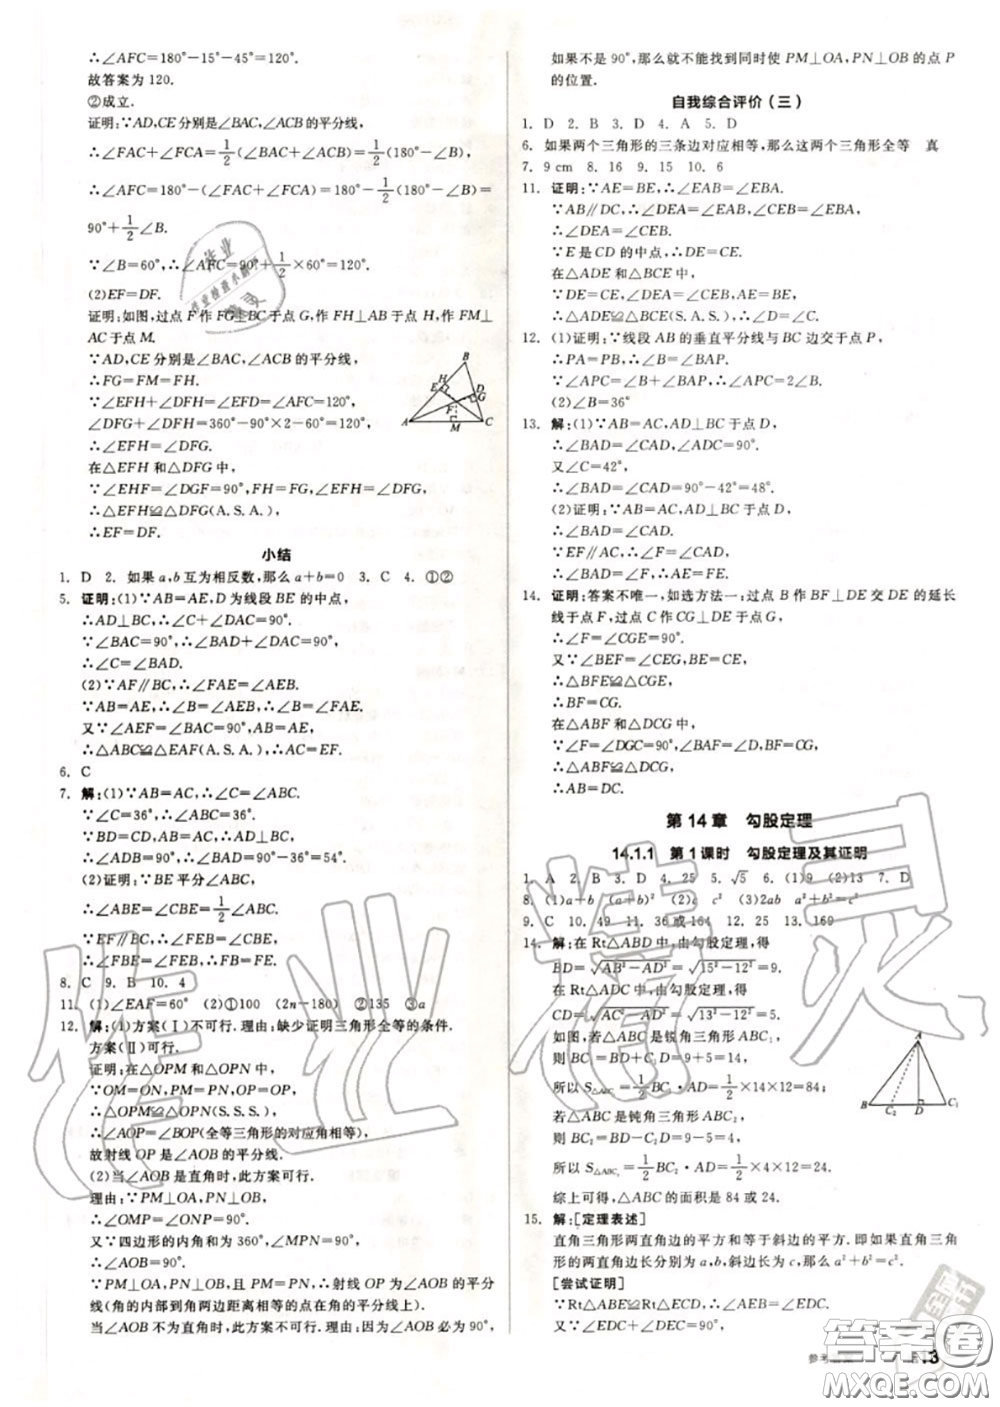 ∴∠AFC=180°-15°-45°=120°.
故答案为120.
②成立.
证明:∵AD,CE分别是∠BAC,∠ACB的平分线,
∴∠FAC+∠FCA=1/2(∠BAC+∠ACB)=1/2(180°-∠B),
∴∠AFC=180°-(∠FAC+∠FCA)=180°-1/2(180°-∠B)=
90°+1/2∠B.
∵∠B=60°,∴∠AFC=90°+1/2×60°=120°.
(2)EF=DF.
证明:如图,过点F作FG⊥BC于点G,作FH⊥AB于点H,作FM⊥
AC于点M.
∵AD,CE分别是∠BAC,∠BCA的平分线,
∴FG=FM=FH.
∵∠EFH+∠DFH=∠EFD=∠AFC=120°,
∠DFG+∠DFH=360°-90°×2-60°=120°,
∴∠EFH=∠DFG.
在△EFH和△DFG中,
∵∠EHF=∠DGF=90°,FH=FG,∠EFH=∠DFG,
∴△EFH≌△DFG(A.S.A.),
∴EF=DF.
B
H
E
D
G
F
A
M
C
小结
1. D 2. 如果a,b互为相反数,那么a+b=0 3. C 4. ①②
5. 证明:(1)∵AB=AE,D为线段BE的中点,
∴AD⊥BC,∴∠C+∠DAC=90°.
∵∠BAC=90°,∴∠BAD+∠DAC=90°,
∴∠C=∠BAD.
(2)∵AF∥BC,∴∠FAE=∠AEB.
∵AB=AE,∴∠B=∠AEB,∴∠B=∠FAE.
又∵∠AEF=∠BAC=90°,AB=AE,
∴△ABC≌△EAF(A.S.A.),∴AC=EF.
6. C
7. 解:(1)∵AB=AC,∴∠C=∠ABC.
∵∠C=36°,∴∠ABC=36°.
∵BD=CD,AB=AC,∴AD⊥BC,
∴∠ADB=90°,∴∠BAD=90°-36°=54°.
(2)证明:∵BE平分∠ABC,
∴∠ABE=∠CBE=1/2∠ABC.
∵EF∥BC,∴∠FEB=∠CBE,
∴∠FBE=∠FEB,∴FB=FE.
8. C 9. B 10. 4
11. (1)∠EAF=60° (2)①100 (2n-180) ②135 ③a
12. 解:(1)方案(Ⅰ)不可行.理由:缺少证明三角形全等的条件.
方案(Ⅱ)可行.
证明:在△OPM和△OPN中,
∵OM=ON,PM=PN,OP=OP,
∴△OPM≌△OPN(S.S.S.),
∴∠AOP=∠BOP(全等三角形的对应角相等),
故射线OP是∠AOB的平分线.
(2)当∠AOB是直角时,此方案可行.
理由:∵PM⊥OA,PN⊥OB,
∴∠OMP=∠ONP=90°.
又∵四边形的内角和为360°,∠MPN=90°,
∴∠AOB=90°.
∵PM⊥OA,PN⊥OB,且PM=PN,∴射线OP是∠AOB的平分
线(角的内部到角两边距离相等的点在角的平分线上).
当∠AOB不为直角时,此方案不可行.理由:因为∠AOB必为90°,
如果不是90°,那么就不能找到同时使PM⊥OA,PN⊥OB的点P
的位置.
自我综合评价(三)
1. D 2. B 3. D 4. A 5. D
6. 如果两个三角形的三条边对应相等,那么这两个三角形全等 真
7. 9 cm 8. 16 9. 15 10. 6
11. 证明:∵AE=BE,∴∠EAB=∠EBA.
∵AB∥DC,∴∠DEA=∠EAB,∠CEB=∠EBA,
∴∠DEA=∠CEB.
∵E是CD的中点,∴DE=CE.
在△ADE和△BCE中,
∵DE=CE,∠DEA=∠CEB,AE=BE,
∴△ADE≌△BCE(S.A.S.),∴∠D=∠C.
12. (1)证明:∵线段AB的垂直平分线与BC边交于点P,
∴PA=PB,∴∠B=∠BAP.
∵∠APC=∠B+∠BAP,∴∠APC=2∠B.
(2)∠B=36°
13. 解:(1)∵AB=AC,AD⊥BC于点D,
∴∠BAD=∠CAD,∠ADC=90°.
又∠C=42°,
∴∠BAD=∠CAD=90°-42°=48°.
(2)证明:∵AB=AC,AD⊥BC于点D,
∴∠BAD=∠CAD.
∵EF∥AC,∴∠F=∠CAD,
∴∠BAD=∠F,∴AE=FE.
14. 证明:答案不唯一,如选方法一:过点B作BF⊥DE交DE的延长
线于点F,过点C作CG⊥DE于点G,
∴∠F=∠CGE=90°.
又∵∠BEF=∠CEG,BE=CE,
∴△BFE≌△CGE,
∴BF=CG.
在△ABF和△DCG中,
∵∠F=∠DGC=90°,∠BAF=∠D,BF=CG,
∴△ABF≌△DCG,
∴AB=DC.
第14章 勾股定理
14.1.1 第1课时 勾股定理及其证明
1. A 2. B 3. D 4. 25 5. √5 6. (1)9 (2)13 7. D
8. (1)a+b (a+b)² (2)c c² (3)2ab a²+b²=c²
9. C 10. 49 11. 36或164 12. 25 13. 169
14. 解:在Rt△ABD中,由勾股定理,得
BD=√(AB²-AD²)=√(15²-12²)=9.
在Rt△ADC中,由勾股定理,得
CD=√(AC²-AD²)=√(13²-12²)=5.
如图,若△ABC是锐角三角形ABC₁,
则BC₁=BD+DC₁=9+5=14,
所以S△ABC₁=1/2BC₁·AD=1/2×14×12=84;
若△ABC是钝角三角形ABC₂,
则BC₂=BD-DC₂=9-5=4,
所以S△ABC₂=1/2BC₂·AD=1/2×4×12=24.
综上可得,△ABC的面积是84或24.
A
B
C₂
D
C₁
15. 解:[定理表述]
直角三角形两直角边的平方和等于斜边的平方.即如果直角三角
形的两直角边长分别为a,b,斜边长为c,那么a²+b²=c².
[尝试证明]
∵Rt△ABE≌Rt△ECD,∴∠AEB=∠EDC.
又∵∠EDC+∠DEC=90°,
作业精灵
答案圈
MXQE.COM